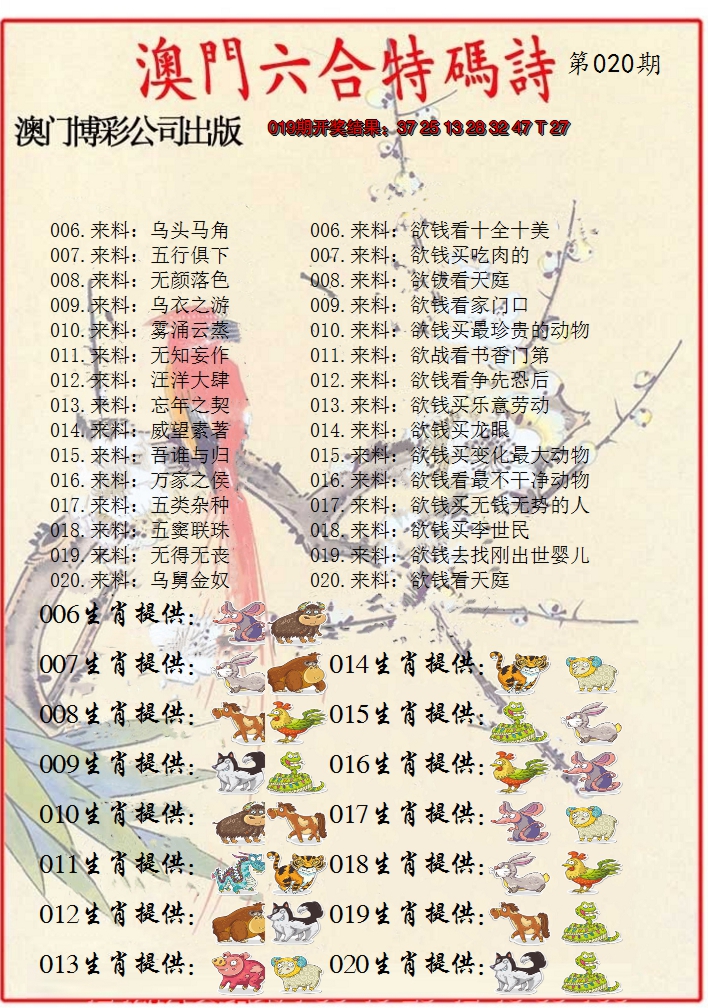 澳門六合特碼詩 第020期
澳门博彩公司出版 019期开奖结果：37 25 13 28 32 47 T 27
006.来料：乌头马角 006.来料：欲钱看十全十美
007.来料：五行俱下 007.来料：欲钱买吃肉的
008.来料：无颜落色 008.来料：欲钱看天庭
009.来料：乌衣之游 009.来料：欲钱看家门口
010.来料：雾涌云蒸 010.来料：欲钱买最珍贵的动物
011.来料：无知妄作 011.来料：欲战看书香门第
012.来料：汪洋大肆 012.来料：欲钱看争先恐后
013.来料：忘年之契 013.来料：欲钱买乐意劳动
014.来料：威望素著 014.来料：欲钱买龙眼
015.来料：吾谁与归 015.来料：欲钱买变化最大动物
016.来料：万家之侯 016.来料：欲钱看最不干净动物
017.来料：五类杂种 017.来料：欲钱买无钱无势的人
018.来料：五窦联珠 018.来料：欲钱买李世民
019.来料：无得无丧 019.来料：欲钱去找刚出世婴儿
020.来料：乌舅金奴 020.来料：欲钱看天庭
006生肖提供：
007生肖提供： 014生肖提供：
008生肖提供： 015生肖提供：
009生肖提供： 016生肖提供：
010生肖提供： 017生肖提供：
011生肖提供： 018生肖提供：
012生肖提供： 019生肖提供：
013生肖提供： 020生肖提供：